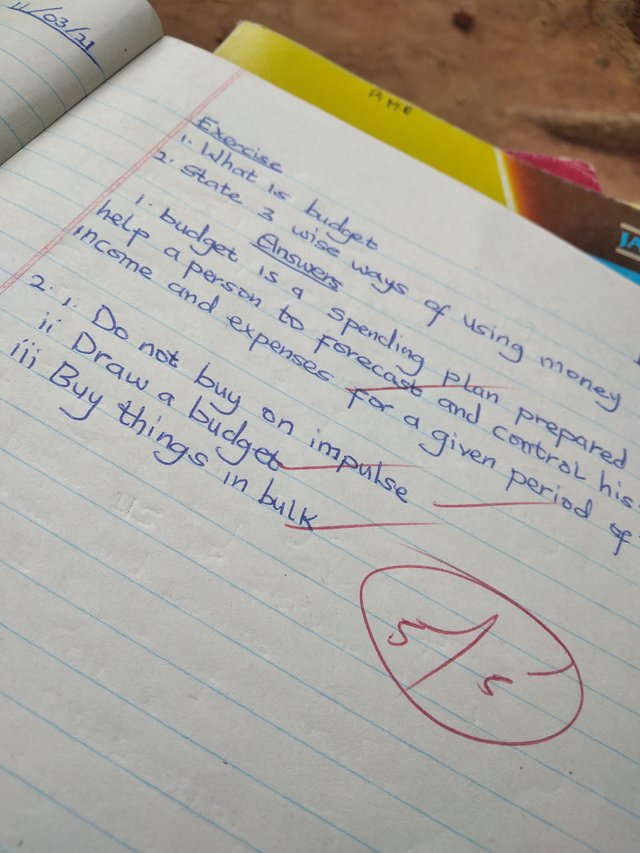 11/03/21
AME
JA
Exercise
1. What is budget
2. State 3 wise ways of using money
Answers
1. budget is a spending plan prepared
help a person to forecast and control his
income and expenses for a given period of
2. i. Do not buy on impulse
ii Draw a budget
iii Buy things in bulk
5/5